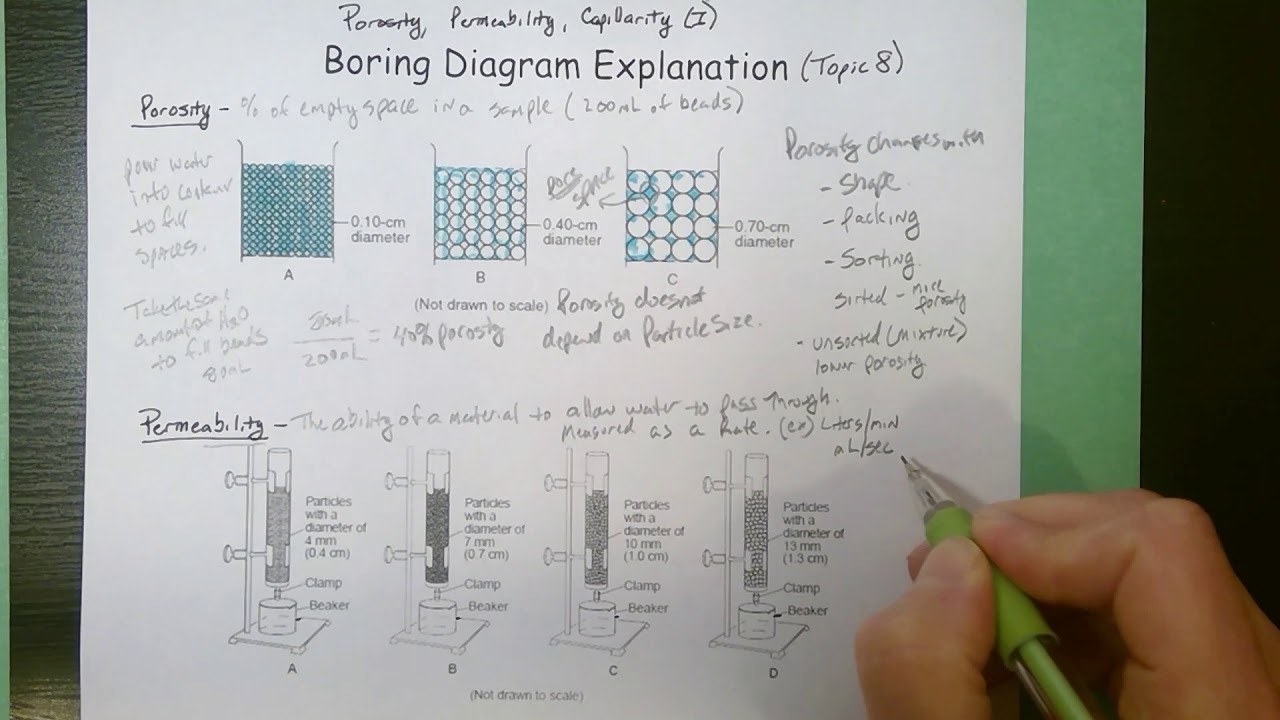 Porosity, Permeability, Capillarity (I)
Boring Diagram Explanation (Topic 8)
Porosity - % of empty space in a sample (200mL of beads)
pour water
into container
to fill
spaces.
0.10-cm
diameter
A
0.40-cm
diameter
B
Pore
space
0.70-cm
diameter
C
(Not drawn to scale)
Porosity does not
depend on Particle Size.
Take the same
amount of H2O
to fill beads
80mL
80mL
200mL
= 40% porosity
Porosity changes with
- Shape
- Packing
- Sorting
sorted - more
porosity
- unsorted (mixture)
lower porosity
Permeability - The ability of a material to allow water to pass through.
Measured as a Rate. (ex) Liters/min
mL/sec
Particles
with a
diameter of
4 mm
(0.4 cm)
Clamp
Beaker
A
Particles
with a
diameter of
7 mm
(0.7 cm)
Clamp
Beaker
B
Particles
with a
diameter of
10 mm
(1.0 cm)
Clamp
Beaker
C
Particles
with a
diameter of
13 mm
(1.3 cm)
Clamp
Beaker
D
(Not drawn to scale)